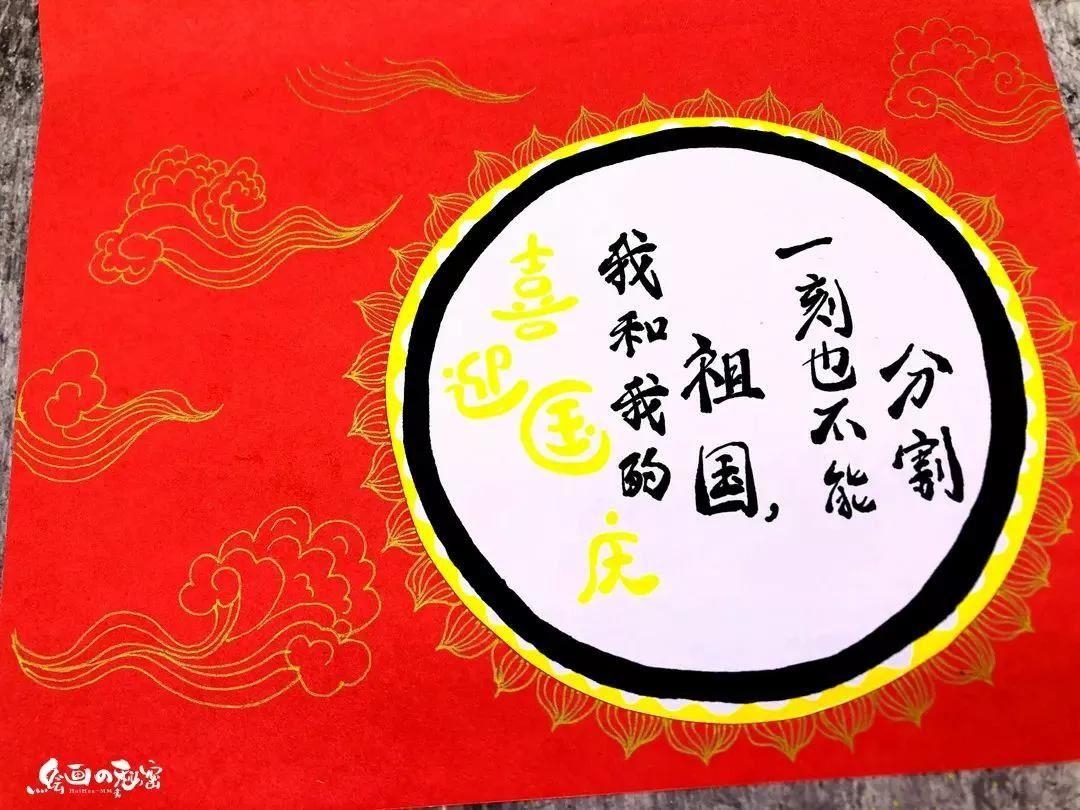 喜迎国庆
我和我的
祖国，
一刻也不能
分割
绘画の秘密
HuiHua-MM